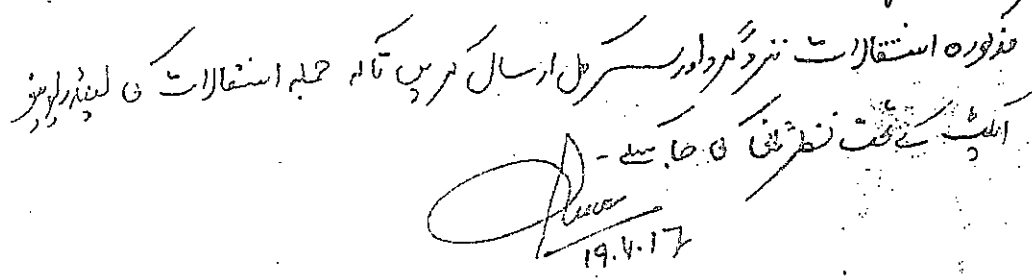 مذکورہ انتقالات نزد گرداور سرکل ارسال کریں تاکہ جملہ انتقالات کی لینڈ ریونیو
ایکٹ کے تحت نظر ثانی کی جا سکے -
19.4.17